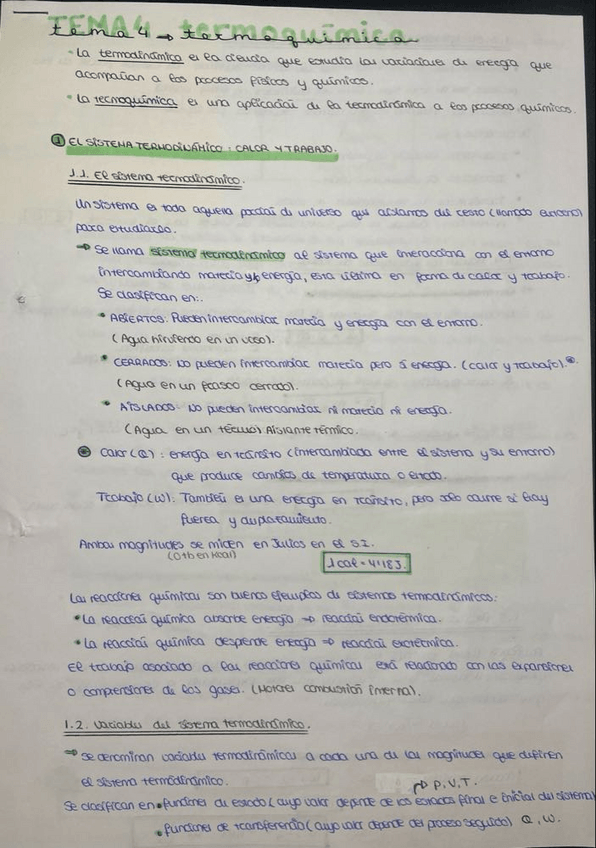 TEMA 4 termoquímica
tema 4 → termoquímica
· La termodinámica es la ciencia que estudia las variaciones de energía que
acompañan a los procesos físicos y químicos.
· La termoquímica es una aplicación de la termodinámica a los procesos químicos.
① EL SISTEMA TERMODINÁMICO: CALOR Y TRABAJO.
1.1. El sistema termodinámico.
Un sistema es toda aquella porción de universo que aislamos del resto (llamado entorno)
para estudiarlo.
→ Se llama sistema termodinámico al sistema que interacciona con el entorno
intercambiando materia y/o energía, esta última en forma de calor y trabajo.
Se clasifican en:.
· ABIERTOS: Pueden intercambiar materia y energía con el entorno.
(Agua hirviendo en un vaso).
· CERRADOS: No pueden intercambiar materia pero sí energía. (calor y trabajo).
(Agua en un frasco cerrado).
· AISLADOS: No pueden intercambiar ni materia ni energía.
(Agua en un termo) Aislante térmico.
Calor (Q): energía en tránsito (intercambiada entre el sistema y su entorno)
que produce cambios de temperatura o estado.
Trabajo (W): También es una energía en tránsito, pero sólo ocurre si hay
fuerza y desplazamiento.
Ambas magnitudes se miden en Julios en el S.I.
(O tb en Kcal)
1 cal = 4'18J.
Las reacciones químicas son buenos ejemplos de sistemas termodinámicos:
· La reacción química absorbe energía ⇒ reacción endotérmica.
· La reacción química desprende energía ⇒ reacción exotérmica.
El trabajo asociado a las reacciones químicas está relacionado con las expansiones
o compresiones de los gases. (Motores combustión interna).
1.2. Variables del sistema termodinámico.
→ Se denominan variables termodinámicas a cada una de las magnitudes que definen
el sistema termodinámico.
→ P, V, T.
Se clasifican en · funciones de estado (cuyo valor depende de los estados final e inicial del sistema)
· funciones de transferencia (cuyo valor depende del proceso seguido) Q, W.